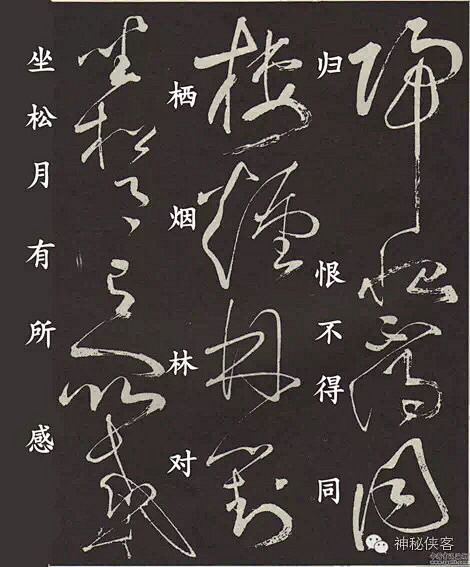 归恨不得同
栖烟林对
坐松月有所感
神秘侠客